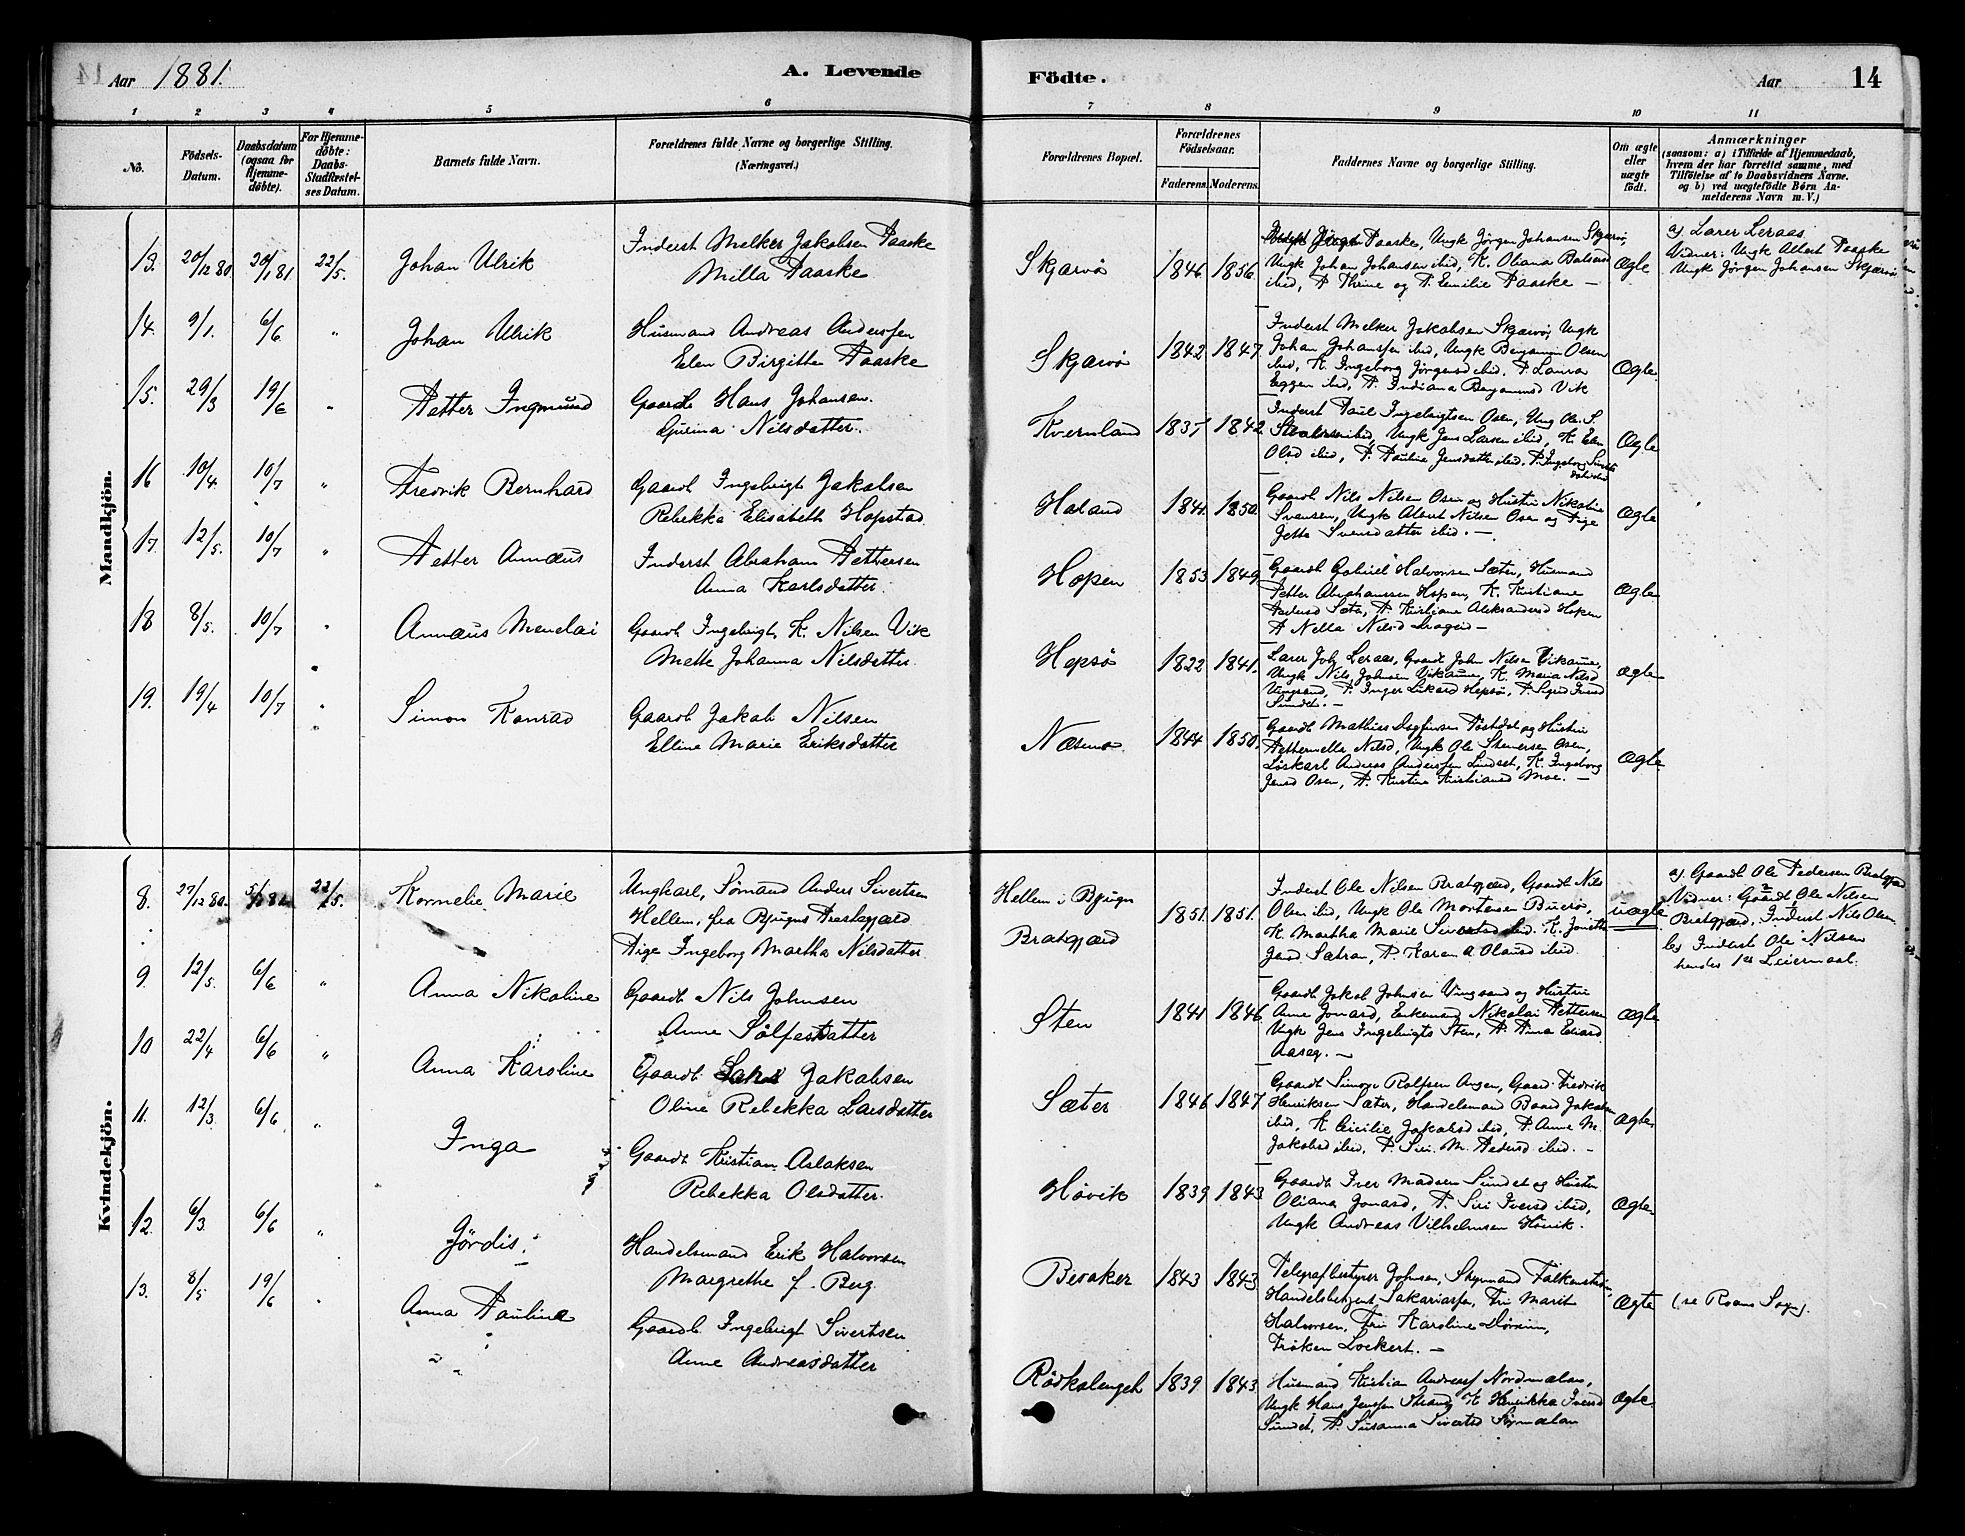 Aar 1881.
A. Levende
Födte.
Aar
14
1 2 3 4 5 6 7 8 9 10 11
No.
Födsels-
Datum.
Daabsdatum
(ogsaa for
Hjemme-
döbte).
For Hjemme-
döbte:
Daabs-
Stadfæstel-
ses Datum.
Barnets fulde Navn.
Forældrenes fulde Navne og borgerlige Stilling.
(Næringsvei.)
Forældrenes Bopæl.
Forældrenes
Födselsaar.
Faderens. Moderens.
Faddernes Navne og borgerlige Stilling.
Om ægte
eller
uægte
födt.
Anmærkninger
(saasom: a) i Tilfælde af Hjemmedaab,
hvem der har forrettet samme, med
Tilföielse af to Daabsvidners Navne.
og b) ved uægtefödte Börn An-
melderens Navn m.V.)
Mandkjön.
13. 20/12 80 20/1 81 22/5. Johan Ulrik
Inderst Melker Jakobsen Paaske
Milla Paaske
Skjærvö 1846 1856
Paaske, Ungk Jörgen Johansen Skjærvö,
Ungk Johan Johansen ibid, K. Oliana
ibid, P. Thrine og P. Emilie Paaske —
Ægte
a) Lærer Leraas
Vidner: Ungk Albert Paaske
Ungk Jörgen Johansen Skjærvö
14. 9/1. 6/6. " Johan Ulrik
Husmand Andreas Anderssen
Elen Birgitta Paaske
Skjærvö 1842 1847
Inderst Melker Jakobsen Skjærvö, Ungk
Johan Johanssen ibid, Ungk Benjamin Olsen
ibid, K. Ingeborg Jörgensd ibid, P. Laura
Eggen ibid, P. Indiana Benjaminsd Vik
Ægte.
15. 29/3 19/6 " Petter Ingmund
Gaardb Hans Johansen.
Gurina Nilsdatter.
Kvernland 1835 1842
Inderst Paul Ingebrigtsen Osen, Ung Ole S.
ibid, Ungk Jens Larsen ibid, K. Elen
Olsd ibid, P. Pauline Jensdatter ibid, P. Ingeborg
Ægte
16 10/4 10/7 " Fredrik Bernhard
Gaardb Ingebrigt Jakobsen
Rebekka Elisabeth Hopstad
Haland 1841 1850.
Gaardb Nils Nilsen Osen og Hustru Nikoline
Svensen, Ungk Albert Nilsen Osen og Pige
Jetta Svensdatter ibid. —
Ægte
17. 12/5. 10/7 " Petter Annæus
Inderst Abraham Pettersen
Anna Karlsdatter.
Hopen 1853 1849
Gaardb Gabriel Halvorsen Sæter, Husmand
Petter Abrahamsen Hopen, K. Kristiane
Pedersd Sæter, P. Kristiane Aleksandersd Hopen
P. Nella Nilsd
Ægte
18 8/5. 10/7 " Annæus Menelai
Gaardb Ingebrigt K. Nilsen Vik
Mette Johanna Nilsdatter.
Hopsö 1822 1841.
Lærer Joh Leraas, Gaardb John Nilsen Vikaune,
Ungk Nils Johnsen Vikaune, K. Maria Nilsd
Vingsand, P. Inger Hopsö, P. Sigrid Iversd
Sundet. —
Ægte
19. 19/4 10/7 " Simon Konrad
Gaardb Jakob Nilsen
Elline Marie Eriksdatter
Næsmo 1844 1850.
Gaardb Mathias og Hustru
Nilsd, Ungk Ole Stenersen Osen,
Löskarl Andreas Anderssen Sundet, K. Ingeborg
Jensd Osen, P. Kristine Kristiansd Moe. —
Ægte.
Kvindekjön.
8. 27/12 80. 22/5. Kornelie Marie
Ungkarl, Sömand Anders Sivertsen
Hellem, fra Bjugns Præstegjæld
Pige Ingeborg Martha Nilsdatter
Hellem i Bjugn
Bratgjærd
1851. 1851.
Inderst Ole Nilsen Bratgjærd, Gaardb Nils
Olsen ibid, Ungk Ole Mortensen Buerö,
K. Martha Marie Sivertsd ibid. K. Jonetta
Jensd Sætran, P. Karen A Olausd ibid.
uægte
a) Gaardb Ole Pedersen Bratgjærd
Vidner: Gaardb Ole Nilsen
Bratgjærd, Inderst Nils Olsen
b) Inderst Ole Nilsen
hendes 1ste Leiermaal.
9. 12/5. 6/6 " Anna Nikoline
Gaardb Nils Johnsen
Anne Sölfestdatter
Sten 1841 1846
Gaardb Jakob Johnsen Vingsand og Hustru
Anne Jonasd, Enkemand Nikolai Pettersen
Ungk Jens Ingebrigts Sten, P. Anna
Ægte
10 22/4 6/6 " Anna Karoline
Gaardb. Lars Jakobsen
Oline Rebekka Larsdatter
Sæter 1846 1847
Gaardb Simon Rolfsen Angen, Gaard Fredrik
Henriksen Sæter, Handelsmand Baard Jakobsen
ibid, K Cicilie Jakobsd ibid, P. Anne M.
Jakobsd ibid, P. Siri M. Pedersd ibid. —
Ægte
11. 12/3. 6/6 " Inga
Gaardb Kristian Aslaksen
Rebekka Olsdatter.
Hövik 1839 1843
Gaardb Iver Madsen Sundet og Hustru
Oliana Jonasd, P. Siri Iversd ibid,
Ungk Andreas Vilhelmsen Hövik.
Ægte
12. 6/3. 6/6 " Gördis.
Handelsmand Erik Halvorsen
Margrethe f. Berg
Besaker 1843 1843
Telegrafbestyrer Johnsen, Styrmand Falkenström,
Handelsbetjent Sakariassen, Fru Marit
Halvorsen, Fru Karoline
Fröken Lockert. —
Ægte
(se Roans Sogn).
13. 8/5 19/6 " Anna Pauline
Gaardb. Ingebrigt Sivertsen
Anne Andreasdatter
Rödkalenget 1839 1843
Husmand Kristian Andreass Nordmelan,
Ungk Hans Jenssen Strand, K Henrikka Iversd
Sundet, P. Susanna Sivertsd Sörmelan
Ægte